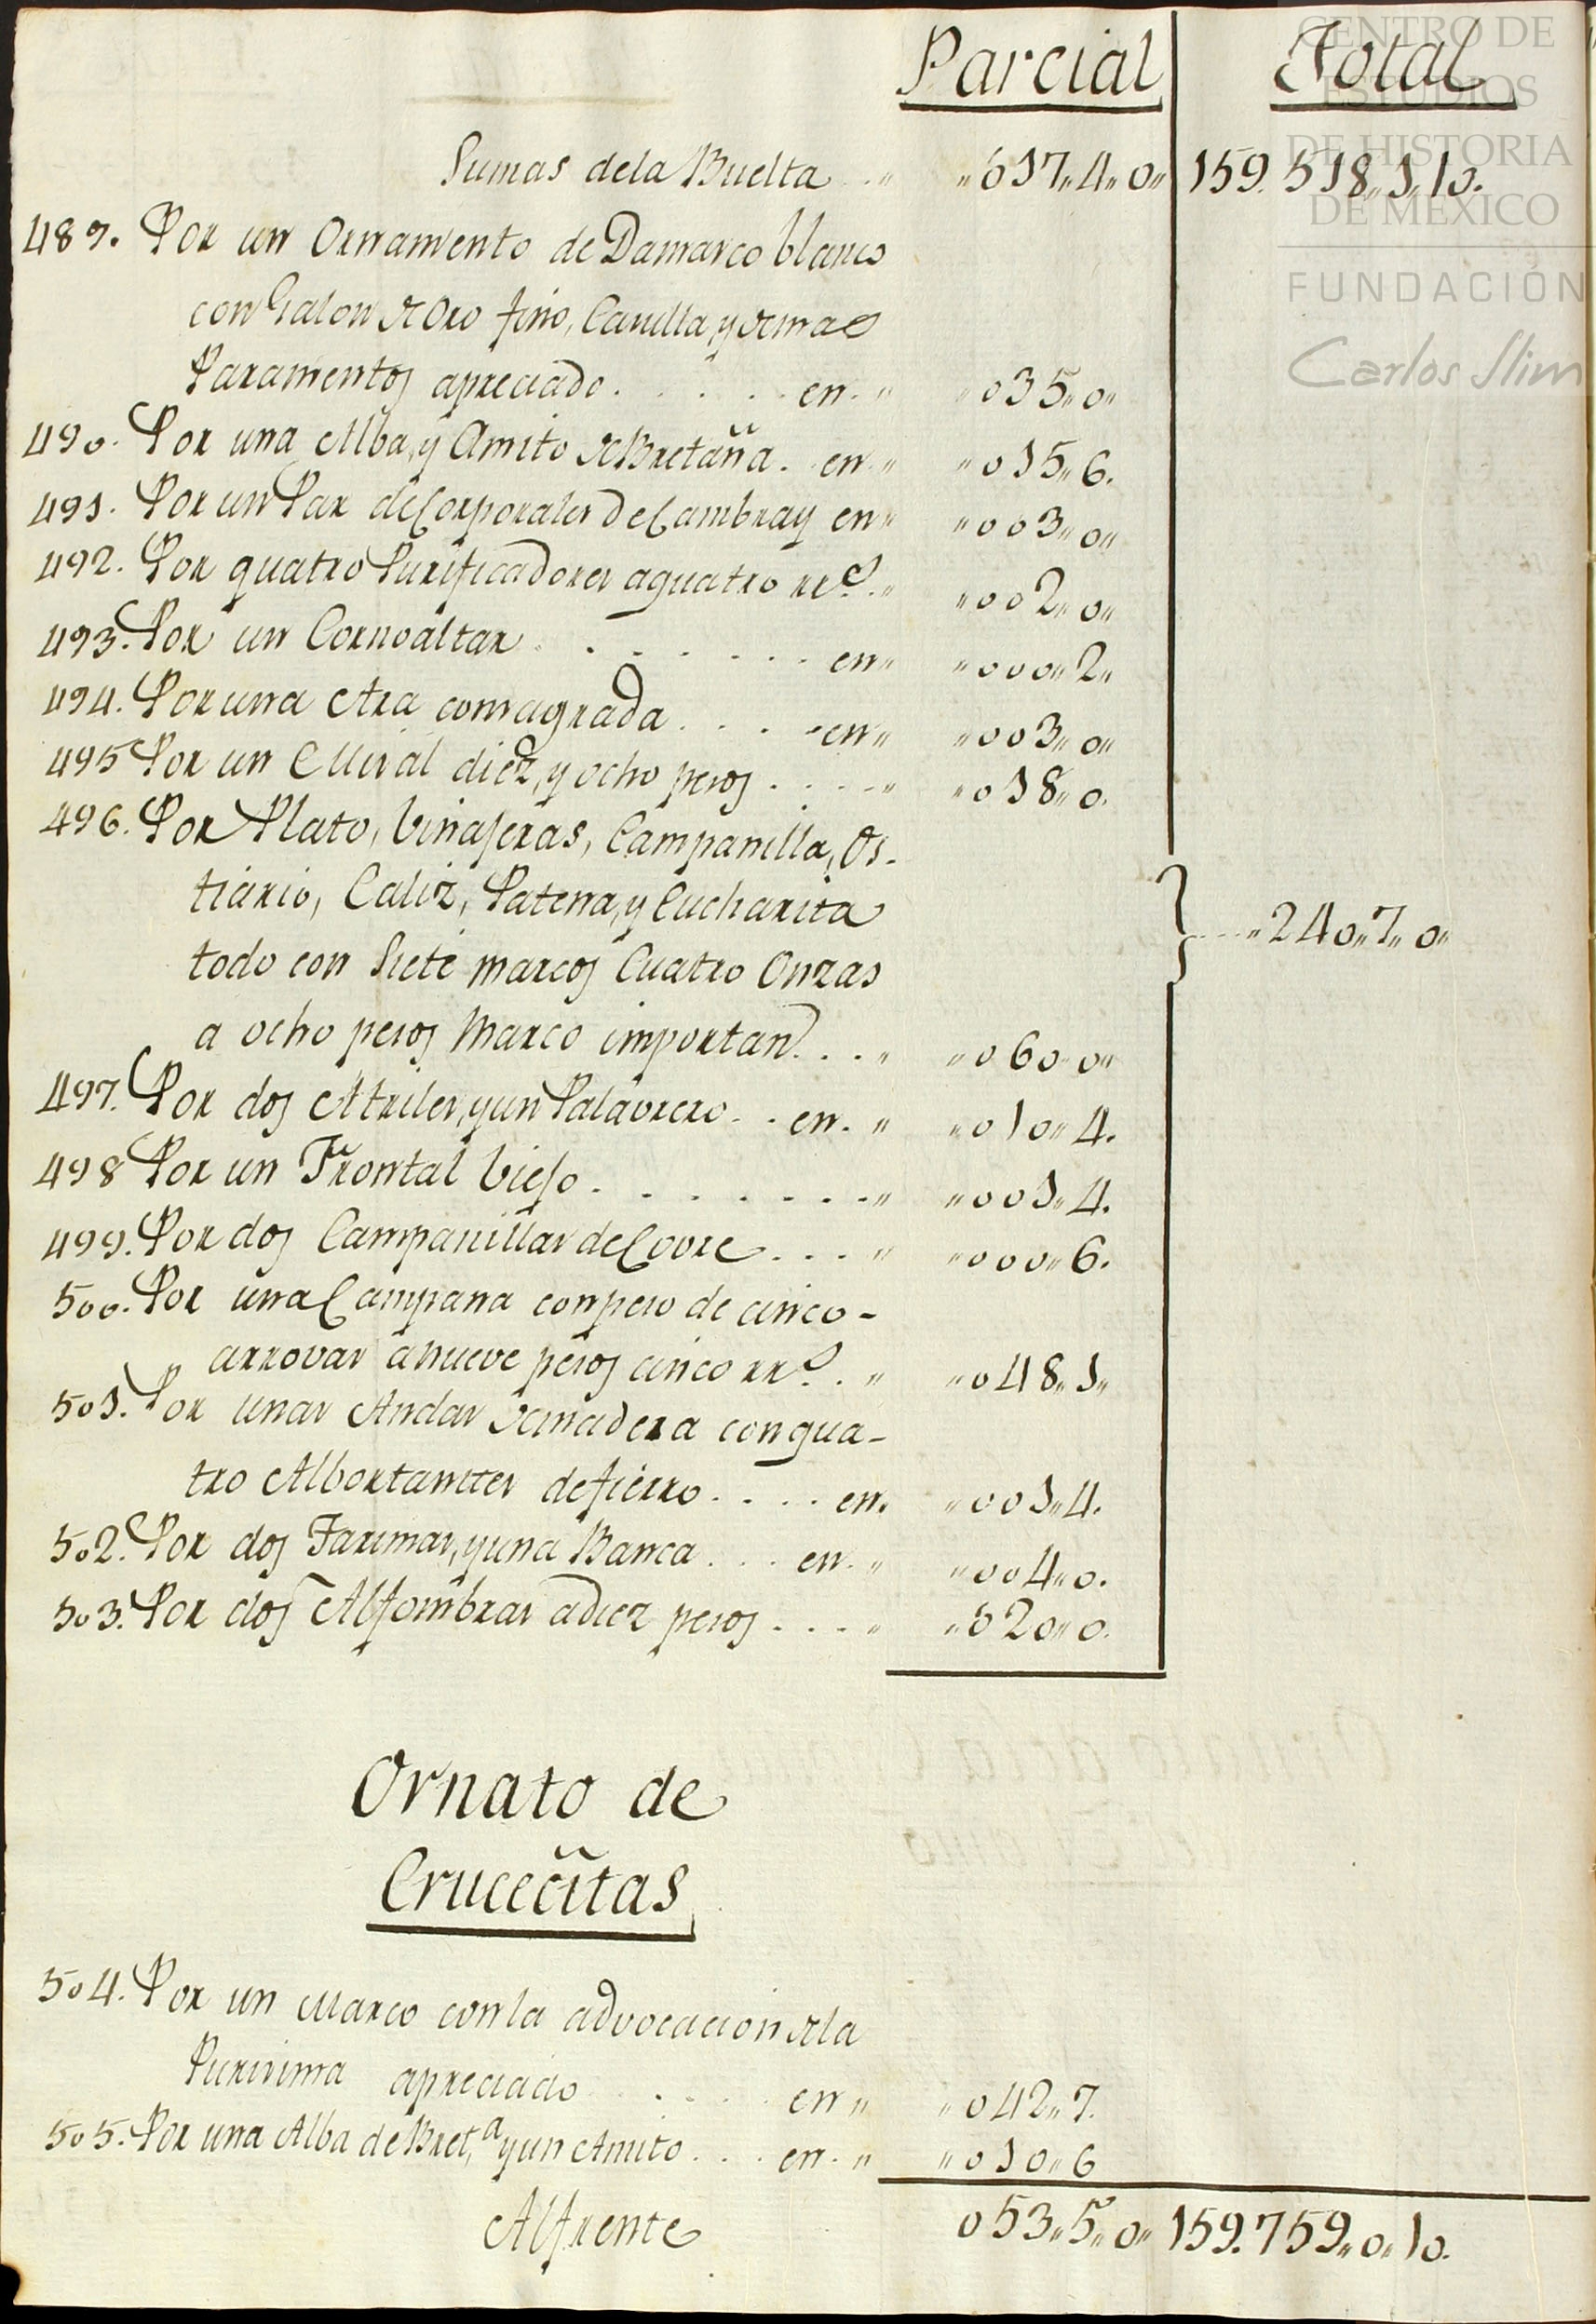 Parcial Total
Sumas dela Buelta .. „ „017„4„0„ 159.518„1„10.
489. Por un Ornamento de Damasco blanco
con Galon de Oro fino, Canilla, y demas
Paramentos apreciado. . . . . en. „ „035„0„
490. Por una Alba, y Amito de Bretaña. en. „ „015„6.
491. Por un Par de Corporales de Cambray en „ „003„0„
492. Por quatro Purificadores aquatro rr.s „ „002„0„
493. Por un Cornoaltar . . . . . . . en „ „000„2„
494. Por una Ara consagrada . . . . en „ „003„0„
495 Por un Misal diez, y ocho pesos . . . . „ „018„0.
496. Por Plato, Vinajeras, Campanilla, Os-
tiario, Caliz, Patena, y Cucharita
todo con Siete marcos Cuatro Onzas
a ocho pesos Marco importan . . . „ „060„0„
„240„7„0„
497. Por dos Atriles, y un Palabrero . . en. „ „010„4.
498 Por un Frontal Viejo . . . . . . . „ „001„4.
499. Por dos Campanillas de Cobre . . . „ „000„6.
500. Por una Campana con peso de cinco-
arrovas á nueve pesos cinco rr.s . „ „048„1„
501. Por unas Andas de madera con qua-
tro Albortantes de fierro . . . . en. „001„4.
502. Por dos Tarimas, y una Banca . . . en. „ „004„0.
503. Por dos Alfombras a diez pesos . . . . „ „020„0.
Ornato de
Crucecitas
504. Por un Marco con la advocacion de la
Purisima apreciado . . . . . en „ „042„7.
505. Por una Alba de Bret,a y un Amito . . . en. „ „010„6
Alfrente 053„5„0„ 159.759„0„10.
CENTRO DE
ESTUDIOS
DE HISTORIA
DE MÉXICO
FUNDACIÓN
Carlos Slim